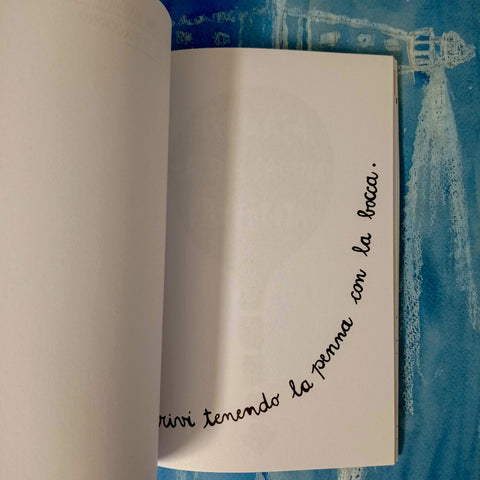 rivi tenendo la penna con la bocca.